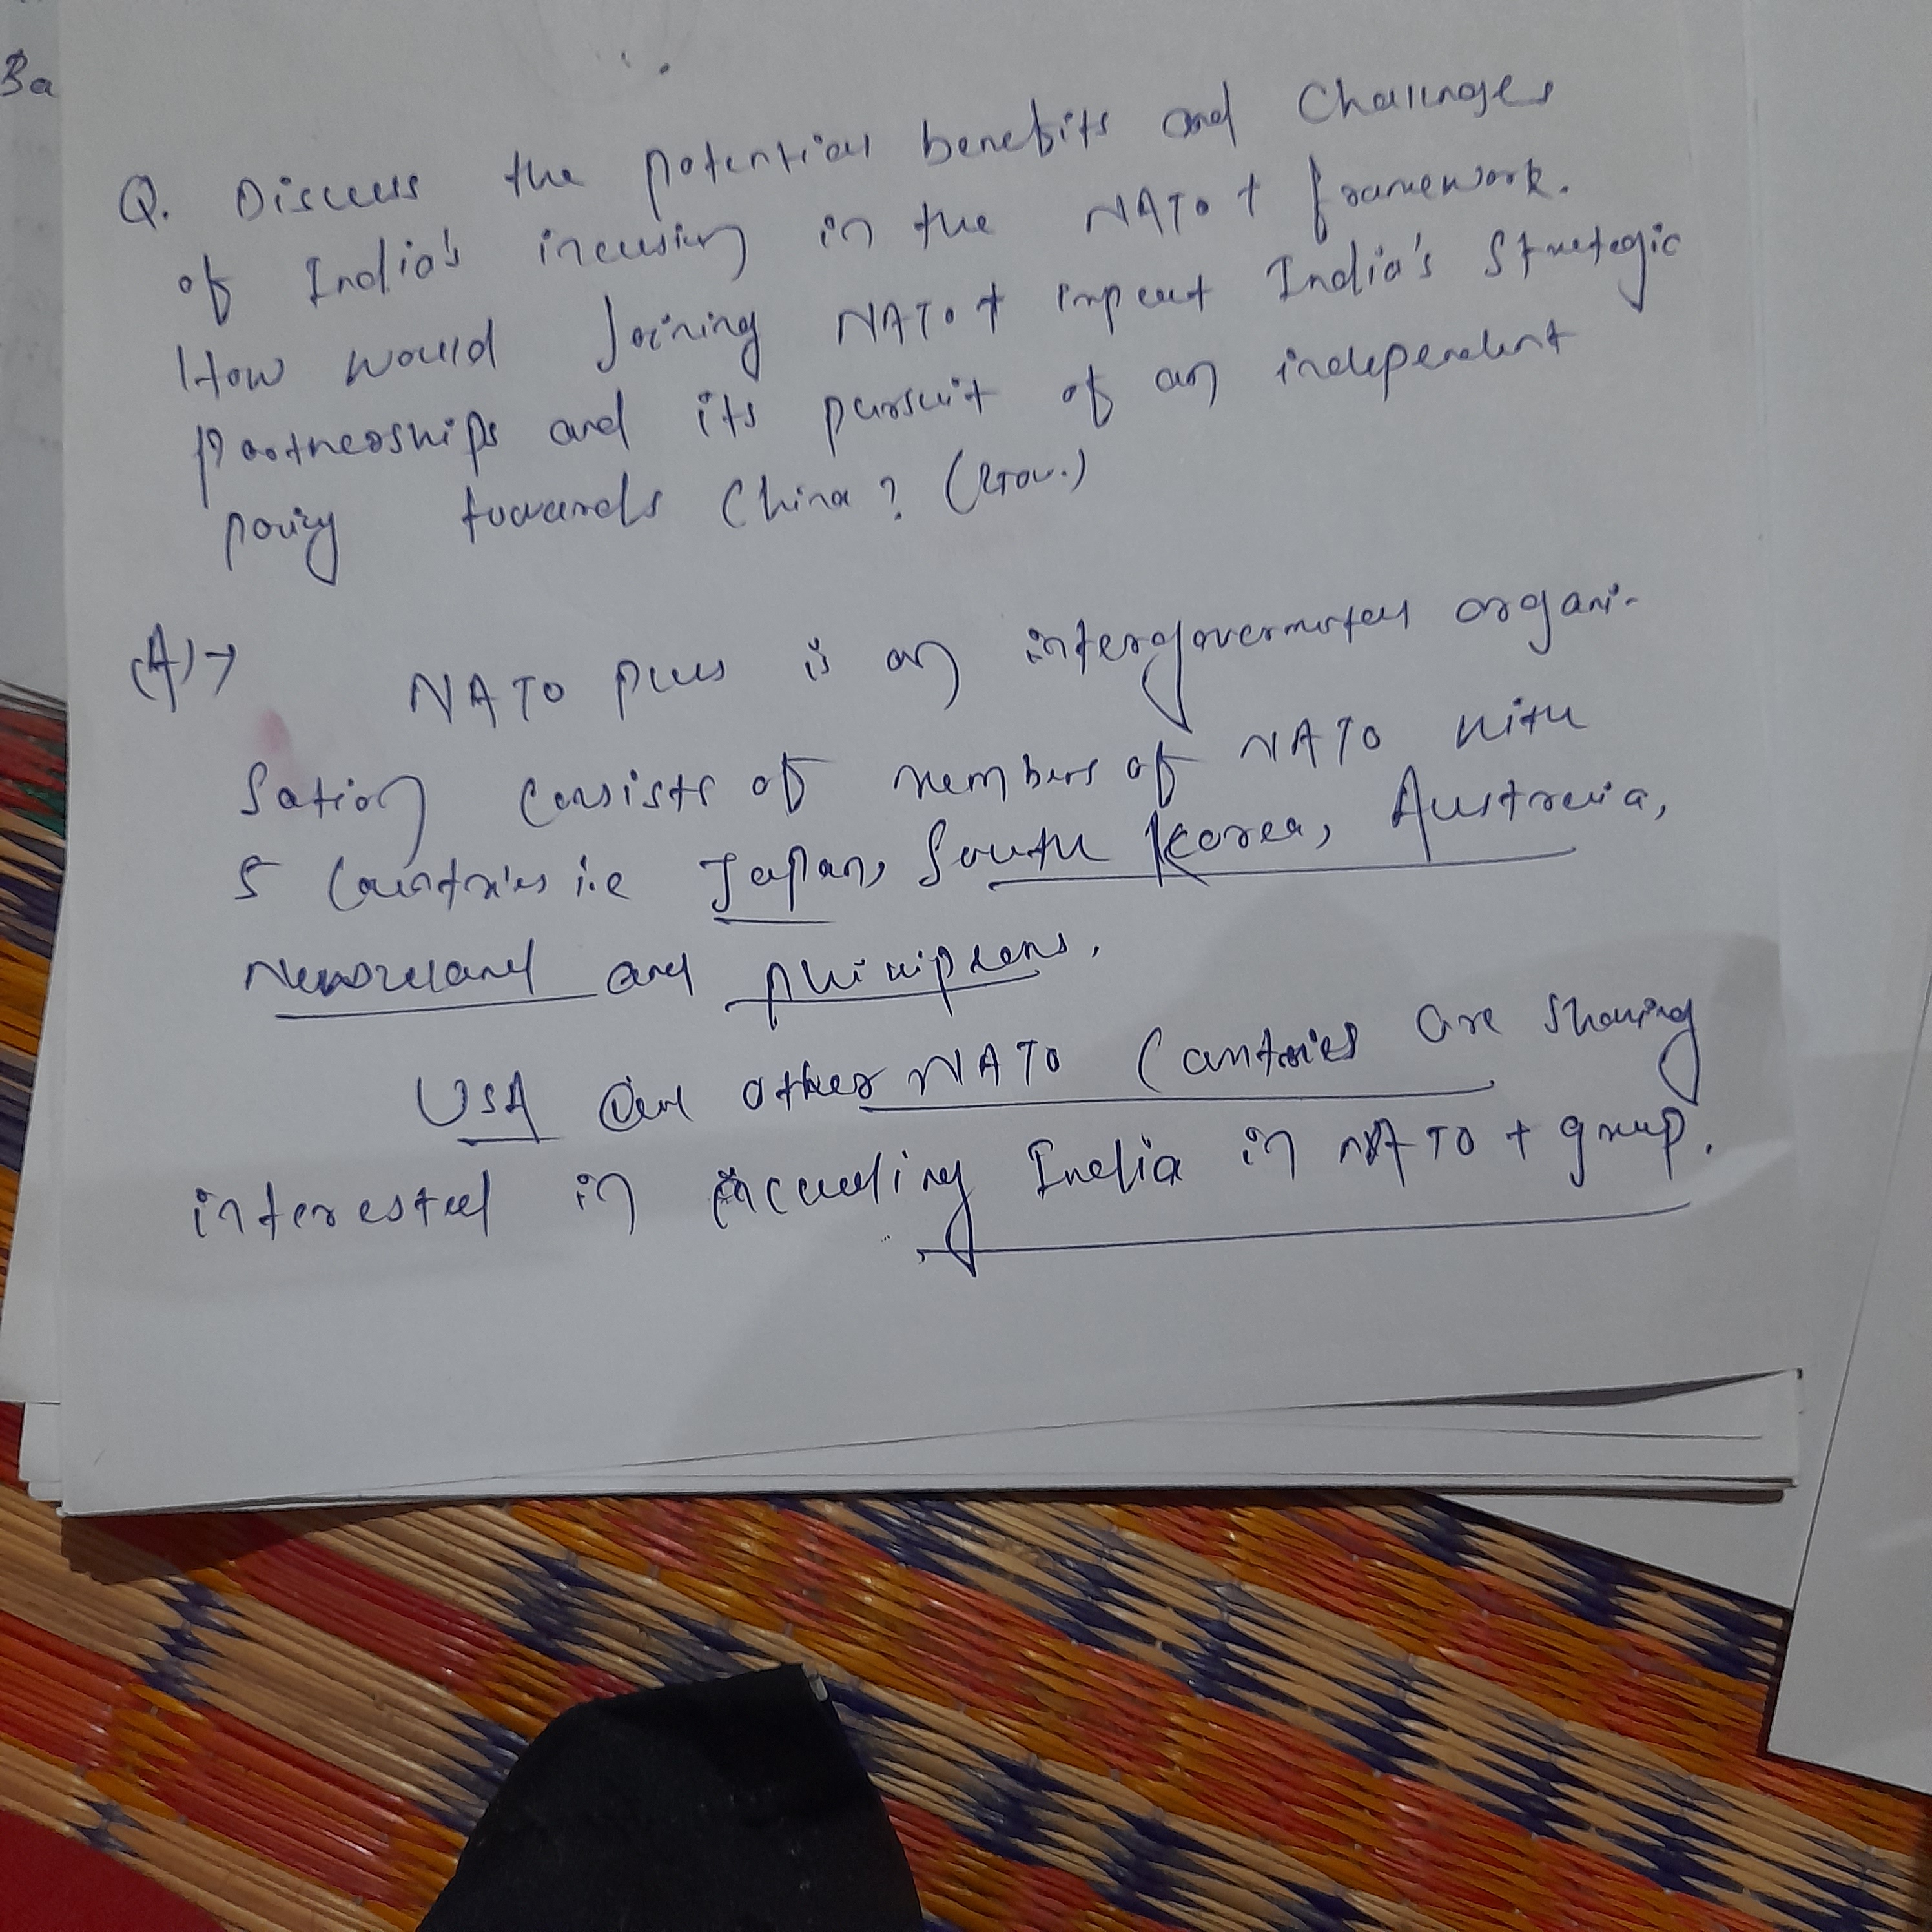 Ba
Q. Discuss the potential benefits and Challenges
of India's inclusion in the NATO + framework.
How would Joining NATO + impact India's Strategic
Partnerships and its pursuit of an independent
policy towards China?
(A)→ NATO plus is an intergovernmental organi-
sation consists of members of NATO with
5 Countries i.e Japan, South Korea, Australia,
Newzeland and
USA and other NATO Countries are showing
interested in including India in NATO + group.